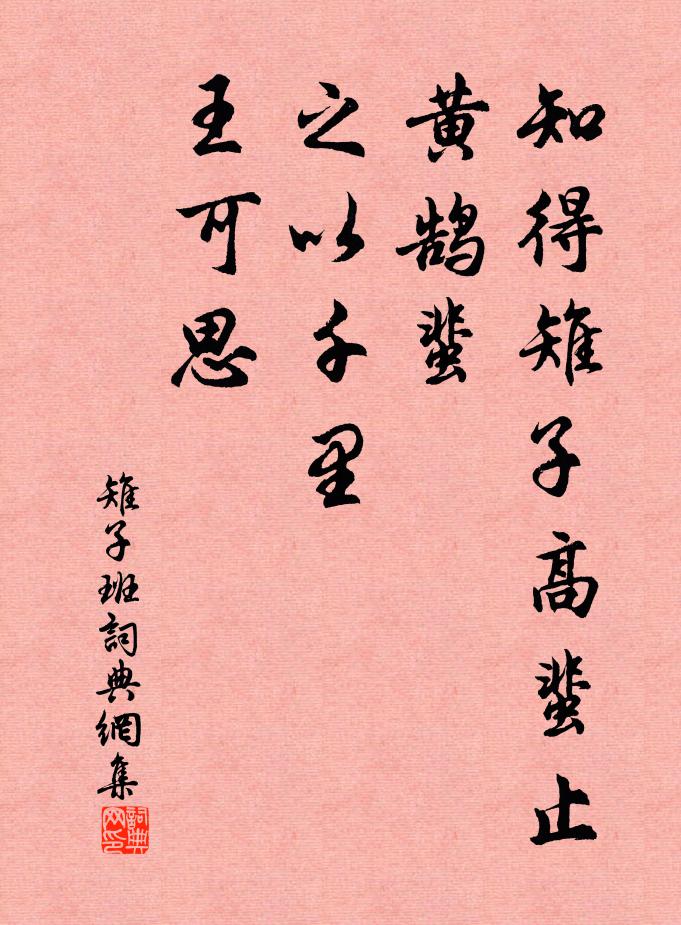 知得雉子高蜚止
黄鹄蜚
之以千里
王可思
雉子班詞典網集
詞典网印